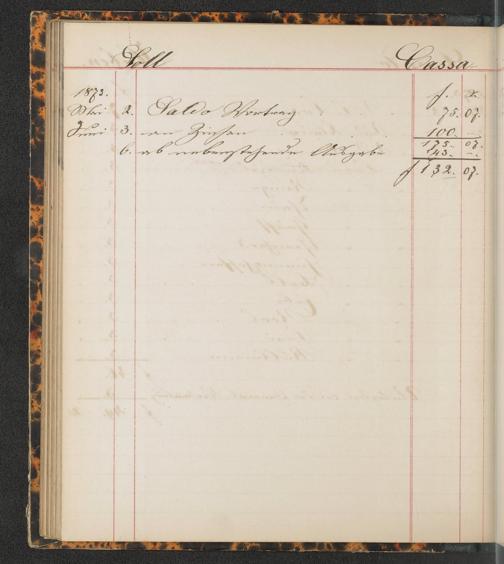 Soll Cassa
1873. f. x.
Mai 2. Saldo Vortrag 75. 07.
Juni 3. an Zinsen 100 —
175. 07.
6. ab nebenstehende Ausgabe 43. —.
f 132. 07.